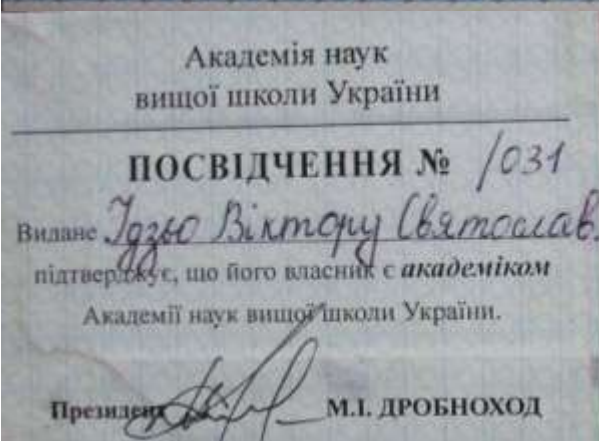 Академія наук
вищої школи України
ПОСВІДЧЕННЯ № 1031
Видане Ідзьо Віктору Святослав.
підтверджує, що його власник є академіком
Академії наук вищої школи України.
Президент М.І. ДРОБНОХОД